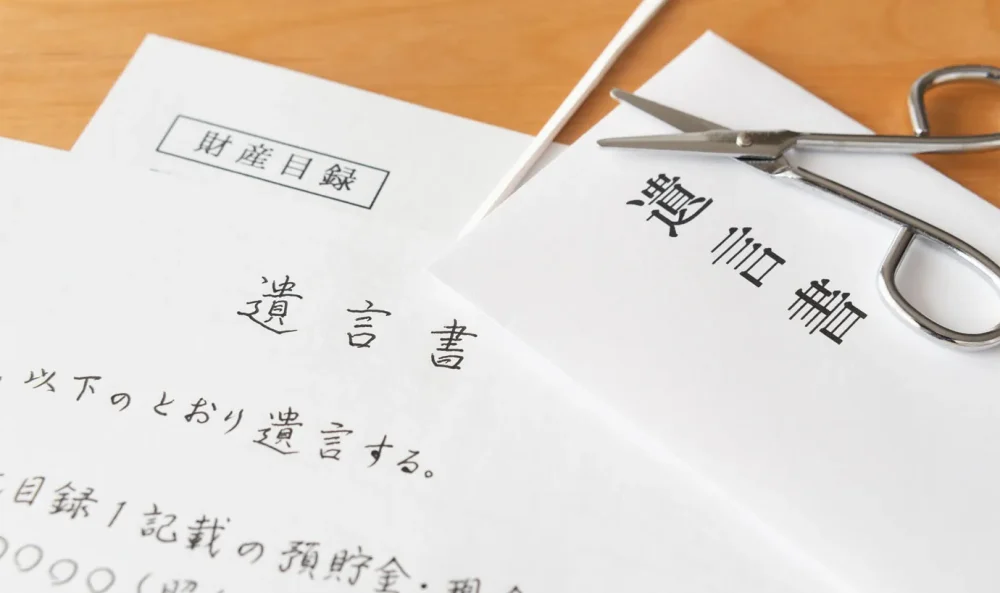 財産目録
遺言書
以下のとおり遺言する。
目録1記載の預貯金・現金
〇〇〇〇(昭
遺言書